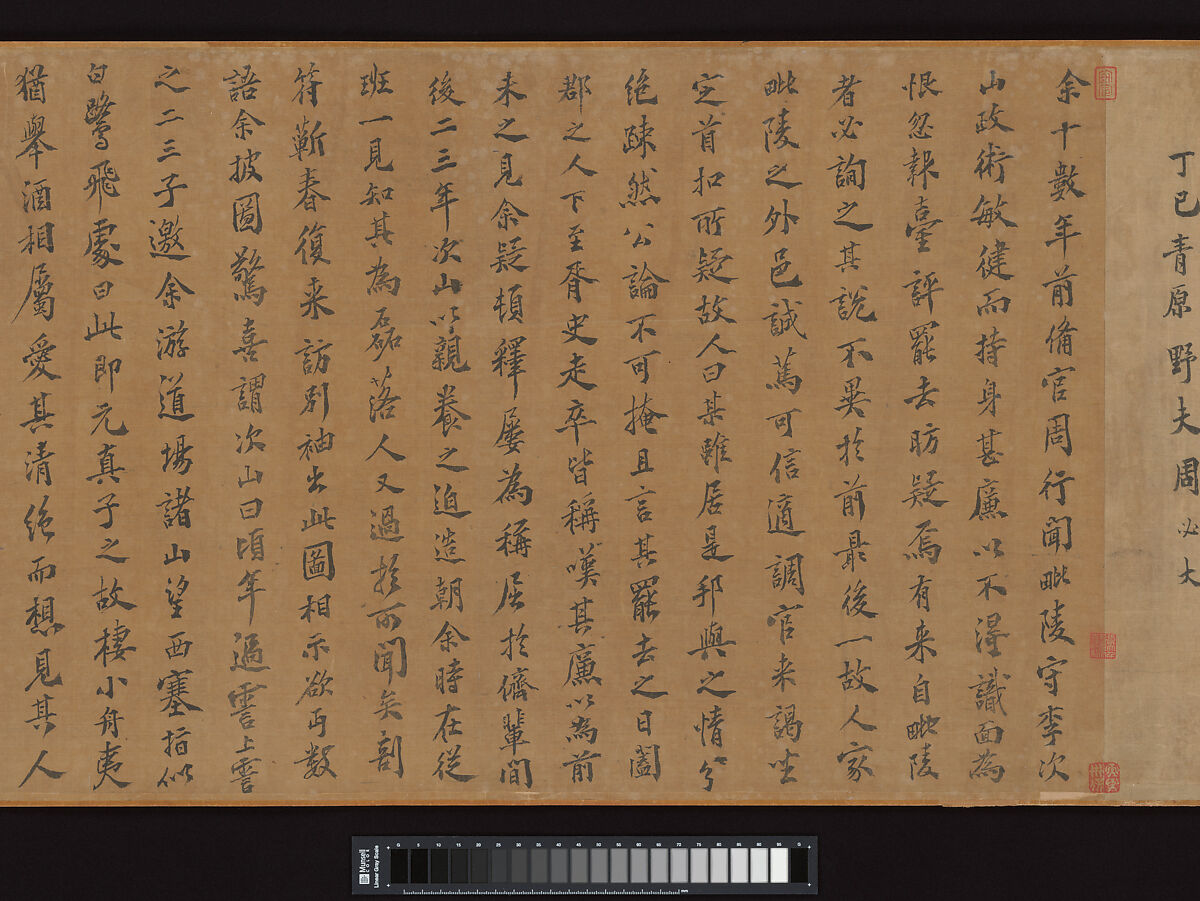 丁巳青原野夫周必大
余十數年前備官周行聞毗陵守李次
山政術敏健而持身甚廉以不淂識面為
恨忽報臺評罷去昉疑焉有来自毗陵
者必詢之其說不異於前最後一故人家
毗陵之外邑誠篤可信適調官来謁坐
定首扣所疑故人曰某雖居是邦與之情分
絕疎然公論不可掩且言其罷去之日闔
郡之人下至胥史走卒皆稱嘆其廉以為前
未之見余疑頓釋屢為稱屈於儕輩間
後二三年次山以親養之迫造朝余時在從
班一見知其為磊落人又過於所聞矣剖
符蘄春復来訪別袖出此圖相示欲丐數
語余披圖驚喜謂次山曰頃年過霅上霅
之二三子邀余游道場諸山望西塞指似
白鷺飛處曰此即元真子之故棲小舟夷
猶舉酒相屬愛其清絕而想見其人
Munsell
Linear Gray Scale